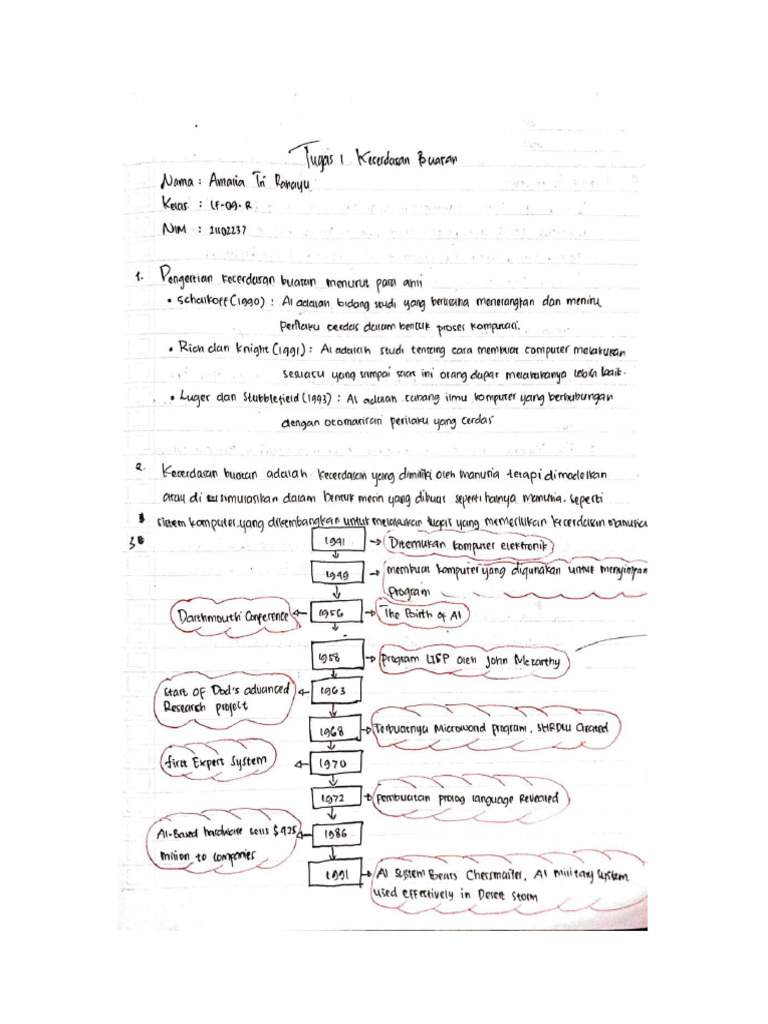 Tugas 1 Kecerdasan Buatan
Nama : Amaria Tri Rahayu
Kelas : IF-09-R
NIM : 21102237
1. Pengertian kecerdasan buatan menurut para ahli
• Schalkoff (1990) : AI adalah bidang studi yang berusaha menerangkan dan meniru
perilaku cerdas dalam bentuk proses komputasi.
• Rich dan Knight (1991) : AI adalah studi tentang cara membuat computer melakukan
sesuatu yang sampai saat ini orang dapat melakukanya lebih baik.
• Luger dan Stubblefield (1993) : AI adalah cabang ilmu komputer yang berhubungan
dengan otomatisasi perilaku yang cerdas
2. Kecerdasan buatan adalah kecerdasan yang dimiliki oleh manusia tetapi dimodelkan
atau di simulasikan dalam bentuk mesin yang dibuat seperti halnya manusia. Seperti
sistem komputer yang dikembangkan untuk melakukan tugas yang memerlukan kecerdasan manusia
3.
1941 → Ditemukan komputer elektronik
1949 → membuat komputer yang digunakan untuk menyimpan
program
Darthmouth Conference ← 1956 → The Birth of AI
1958 → program LISP oleh John Mccarthy
Start OF Dod's advanced
Research project ← 1963
1968 → Terbuatnya Microword program, SHRDLU Created
first Expert System ← 1970
1972 → pembuatan prolog language Revealed
AI-Based hardware sells $425
million to companies ← 1986
1991 → AI system Beats Chessmaster, AI military system
used effectively in Desert Storm